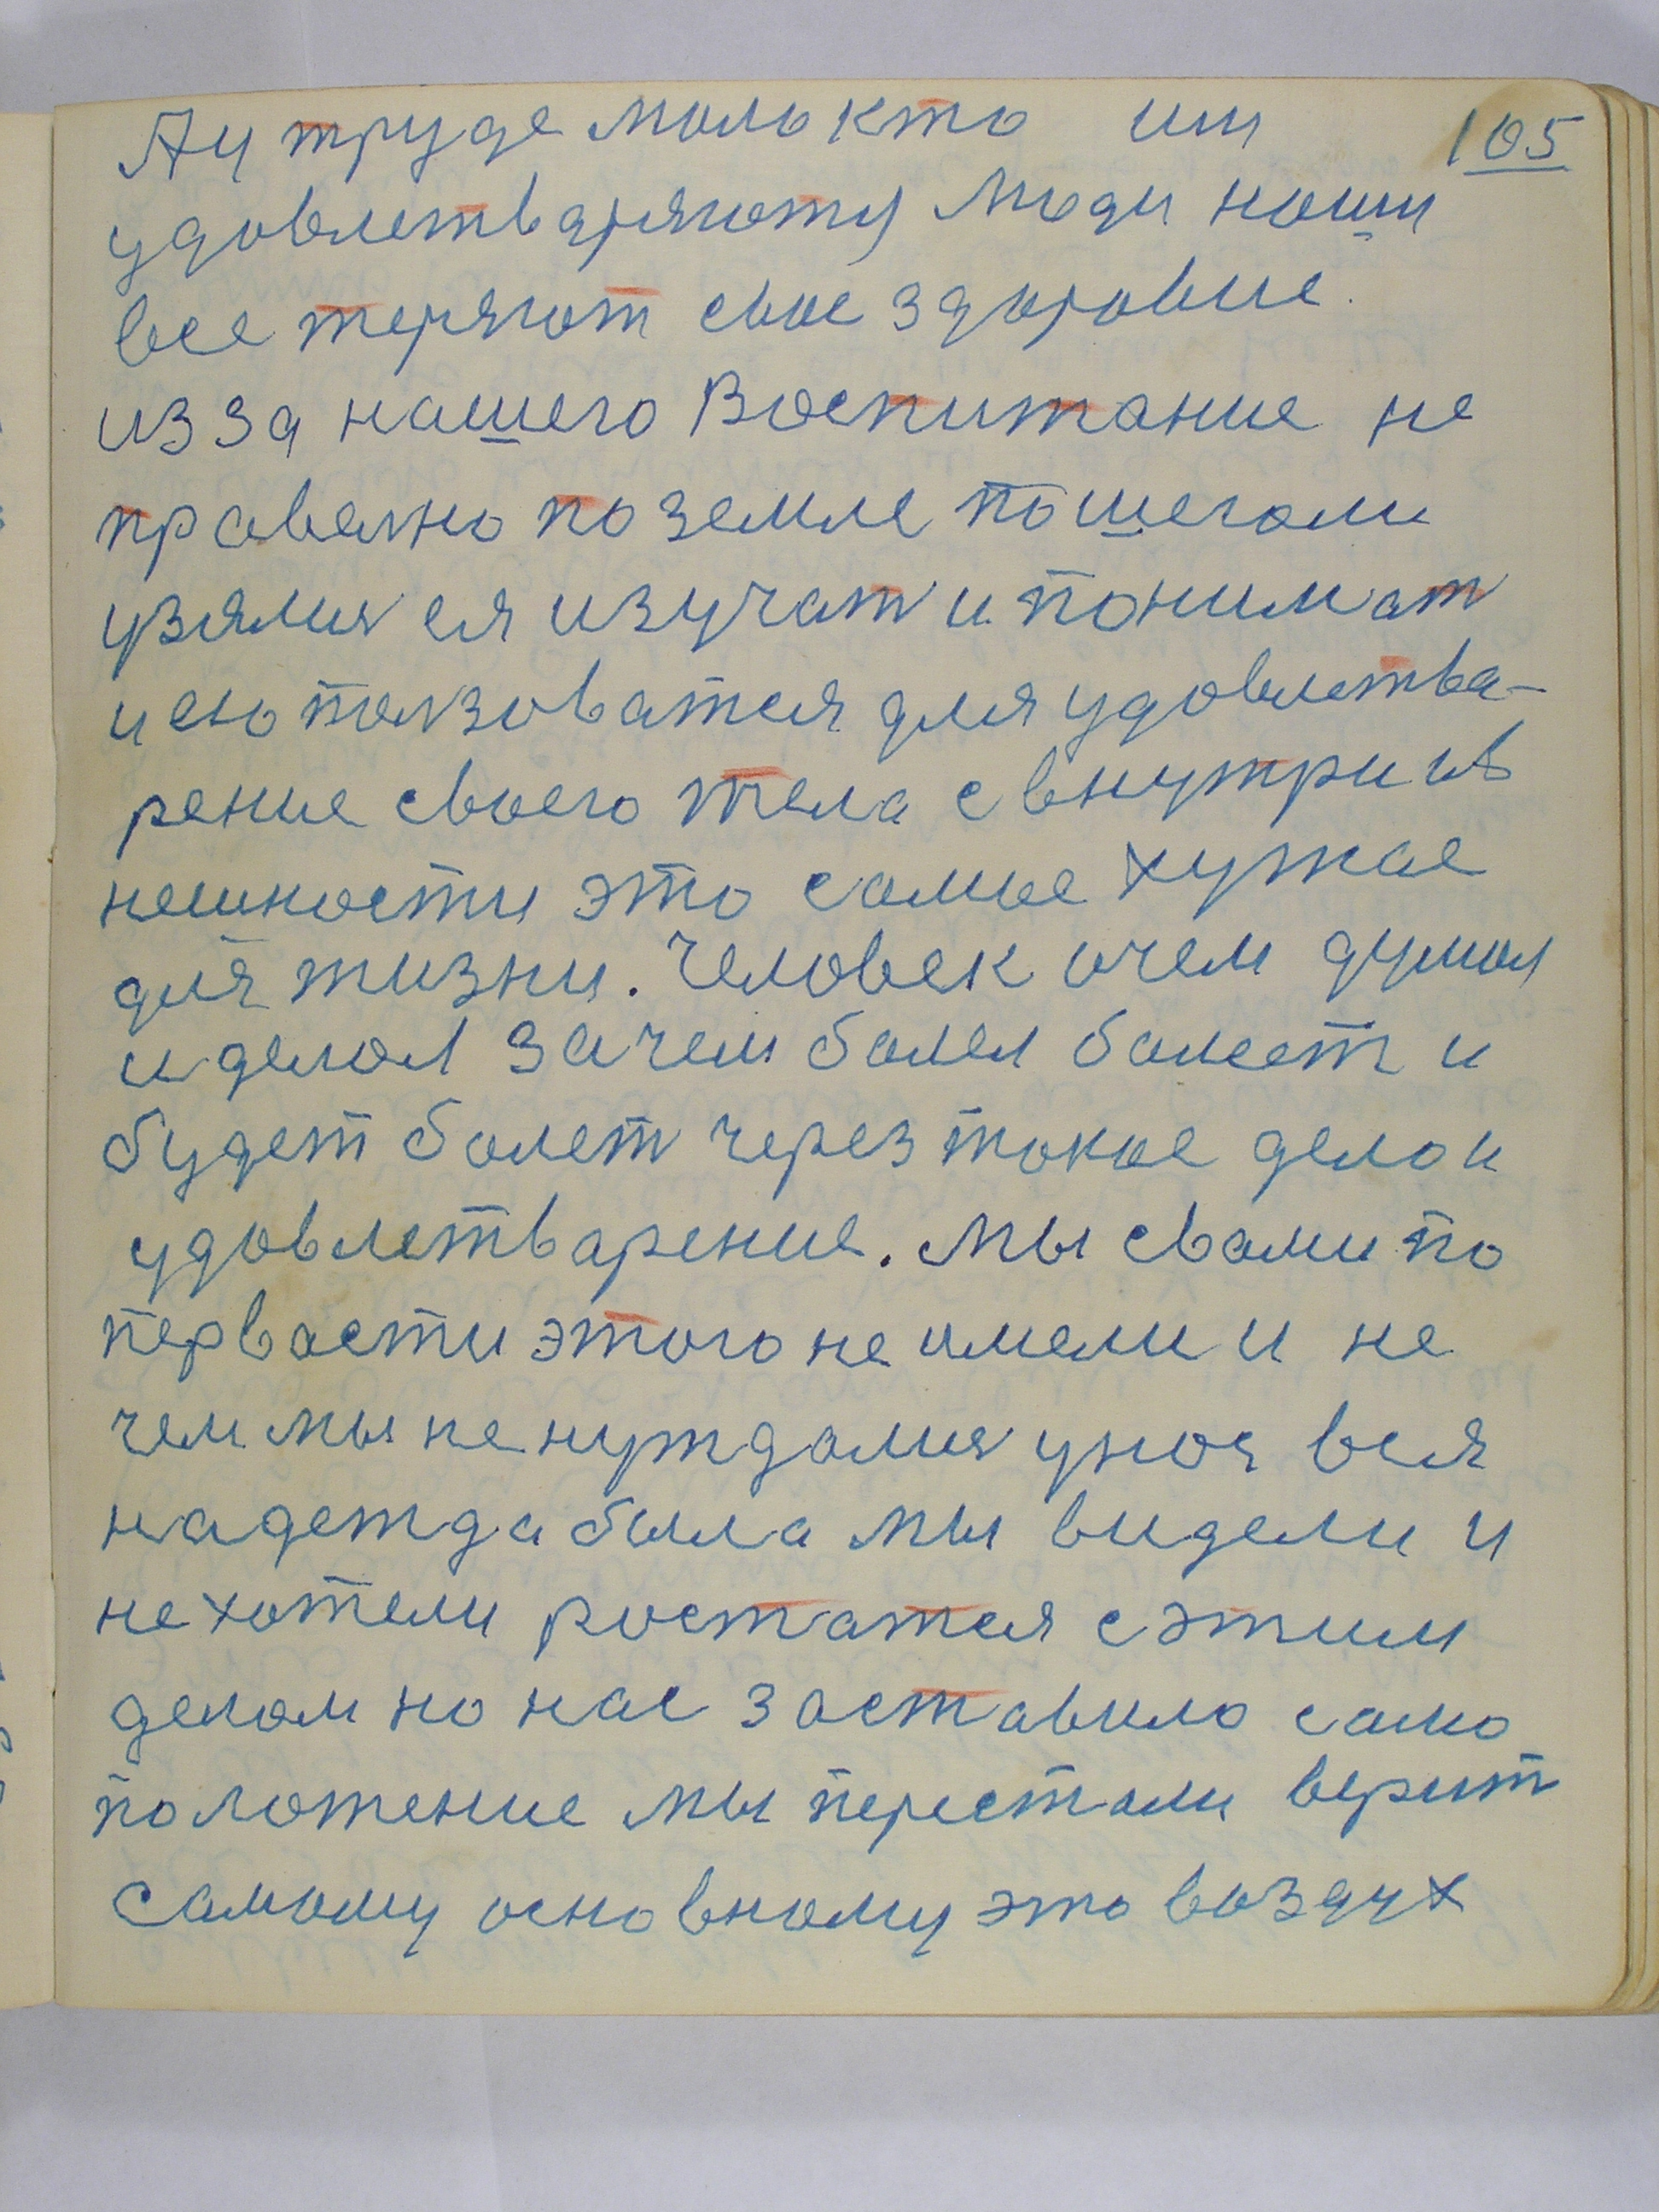 А у труде мало кто им 105
удовлетваряютя Люди наши
все теряют свое здоровие.
из за нашего Воспитание не
правелно по земле пошегали
узялися ея изучат и понимат
и ею ползоватся для удовлетва-
рение своего тела с внутри и в
нешности это самое хужае
для жизни. Человек о чем думал
и делал зачем болел болеет и
будет болет через такое дело и
удовлетварение. Мы свами по
первости этого не имели и не
чем мы не нуждалися у нас вся
надежда была мы видели и
не хотели растатся с этим
делом но нас заставило само
положение мы перестали верит
самому основному это воздух